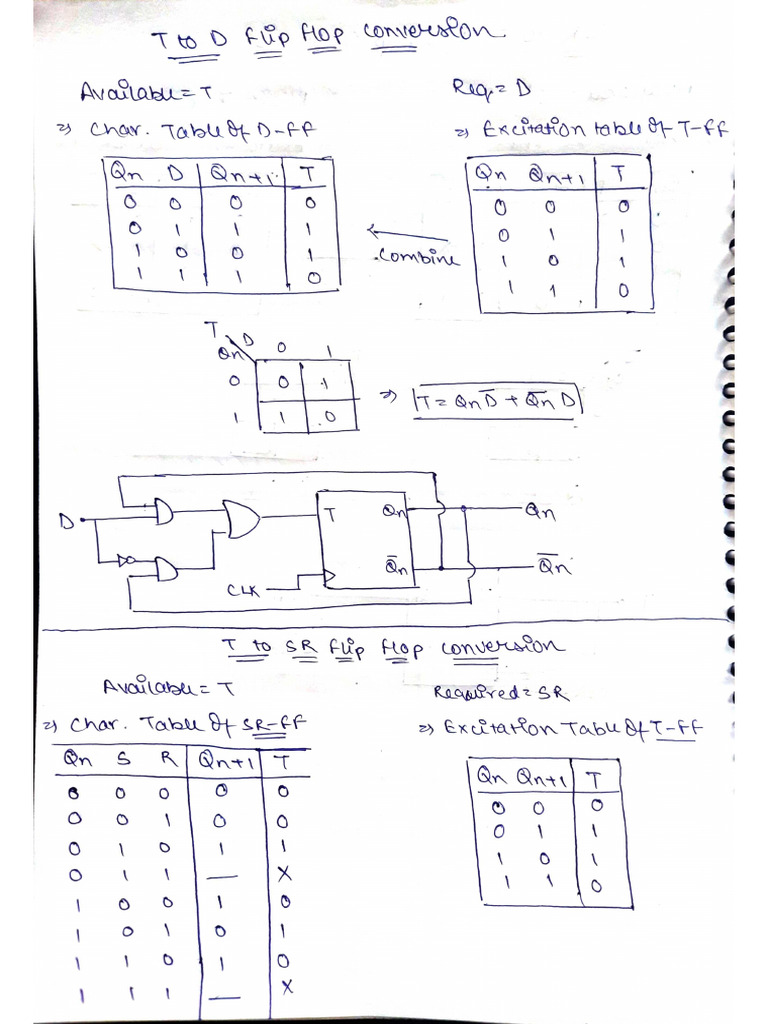 T to D flip flop conversion
Available = T
Req. = D
=> Char. Table of D-FF
=> Excitation table of T-FF
Qn D Qn+1 T
0 0 0 0
0 1 1 1
1 0 0 1
1 1 1 0
Combine
Qn Qn+1 T
0 0 0
0 1 1
1 0 1
1 1 0
T
Qn D 0 1
0 0 1
1 1 0
=> T = QnD̅ + Q̅nD
D
T Qn
Q̅n
CLK
Qn
Q̅n
T to SR flip flop conversion
Available = T
Required = SR
=> Char. Table of SR-FF
=> Excitation Table of T-FF
Qn S R Qn+1 T
0 0 0 0 0
0 0 1 0 0
0 1 0 1 1
0 1 1 — X
1 0 0 1 0
1 0 1 0 1
1 1 0 1 0
1 1 1 — X
Qn Qn+1 T
0 0 0
0 1 1
1 0 1
1 1 0